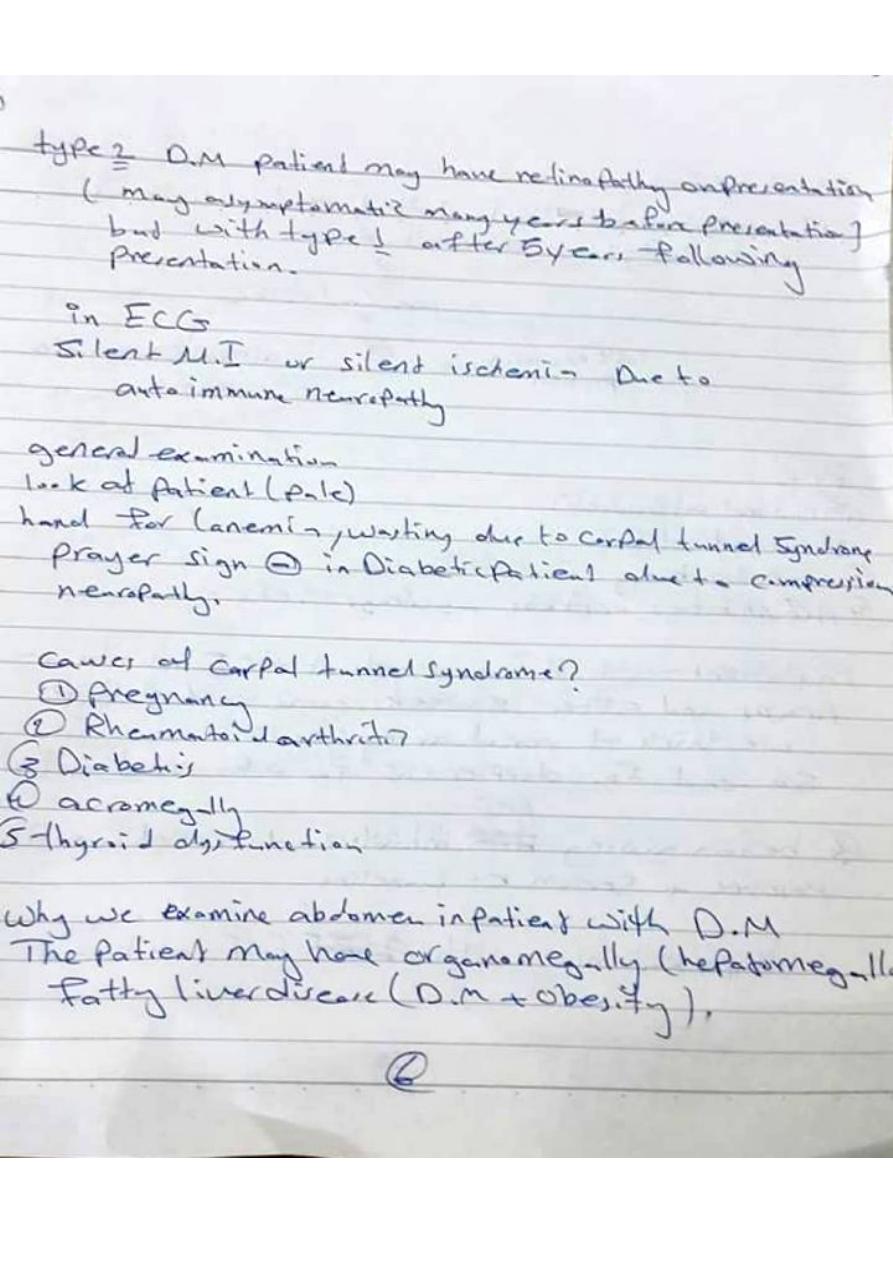 type 2 D.M patient may have retinopathy on presentation
( may asymptomatic many years before presentation)
but with type 1 after 5 years following
presentation.
in ECG
Silent M.I or silent ischemia Due to
autoimmune neuropathy
general examination
look at patient (pale)
hand for (anemia, wasting due to carpal tunnel syndrome
prayer sign ⊖ in Diabetic patient due to compression
neuropathy.
causes of carpal tunnel syndrome?
① pregnancy
② Rheumatoid arthritis
③ Diabetis
④ acromegally
5- thyroid dysfunction
Why we examine abdomen in patient with D.M
The patient may have organomegally (hepatomegally
fatty liver disease (D.M + obesity).
⑥